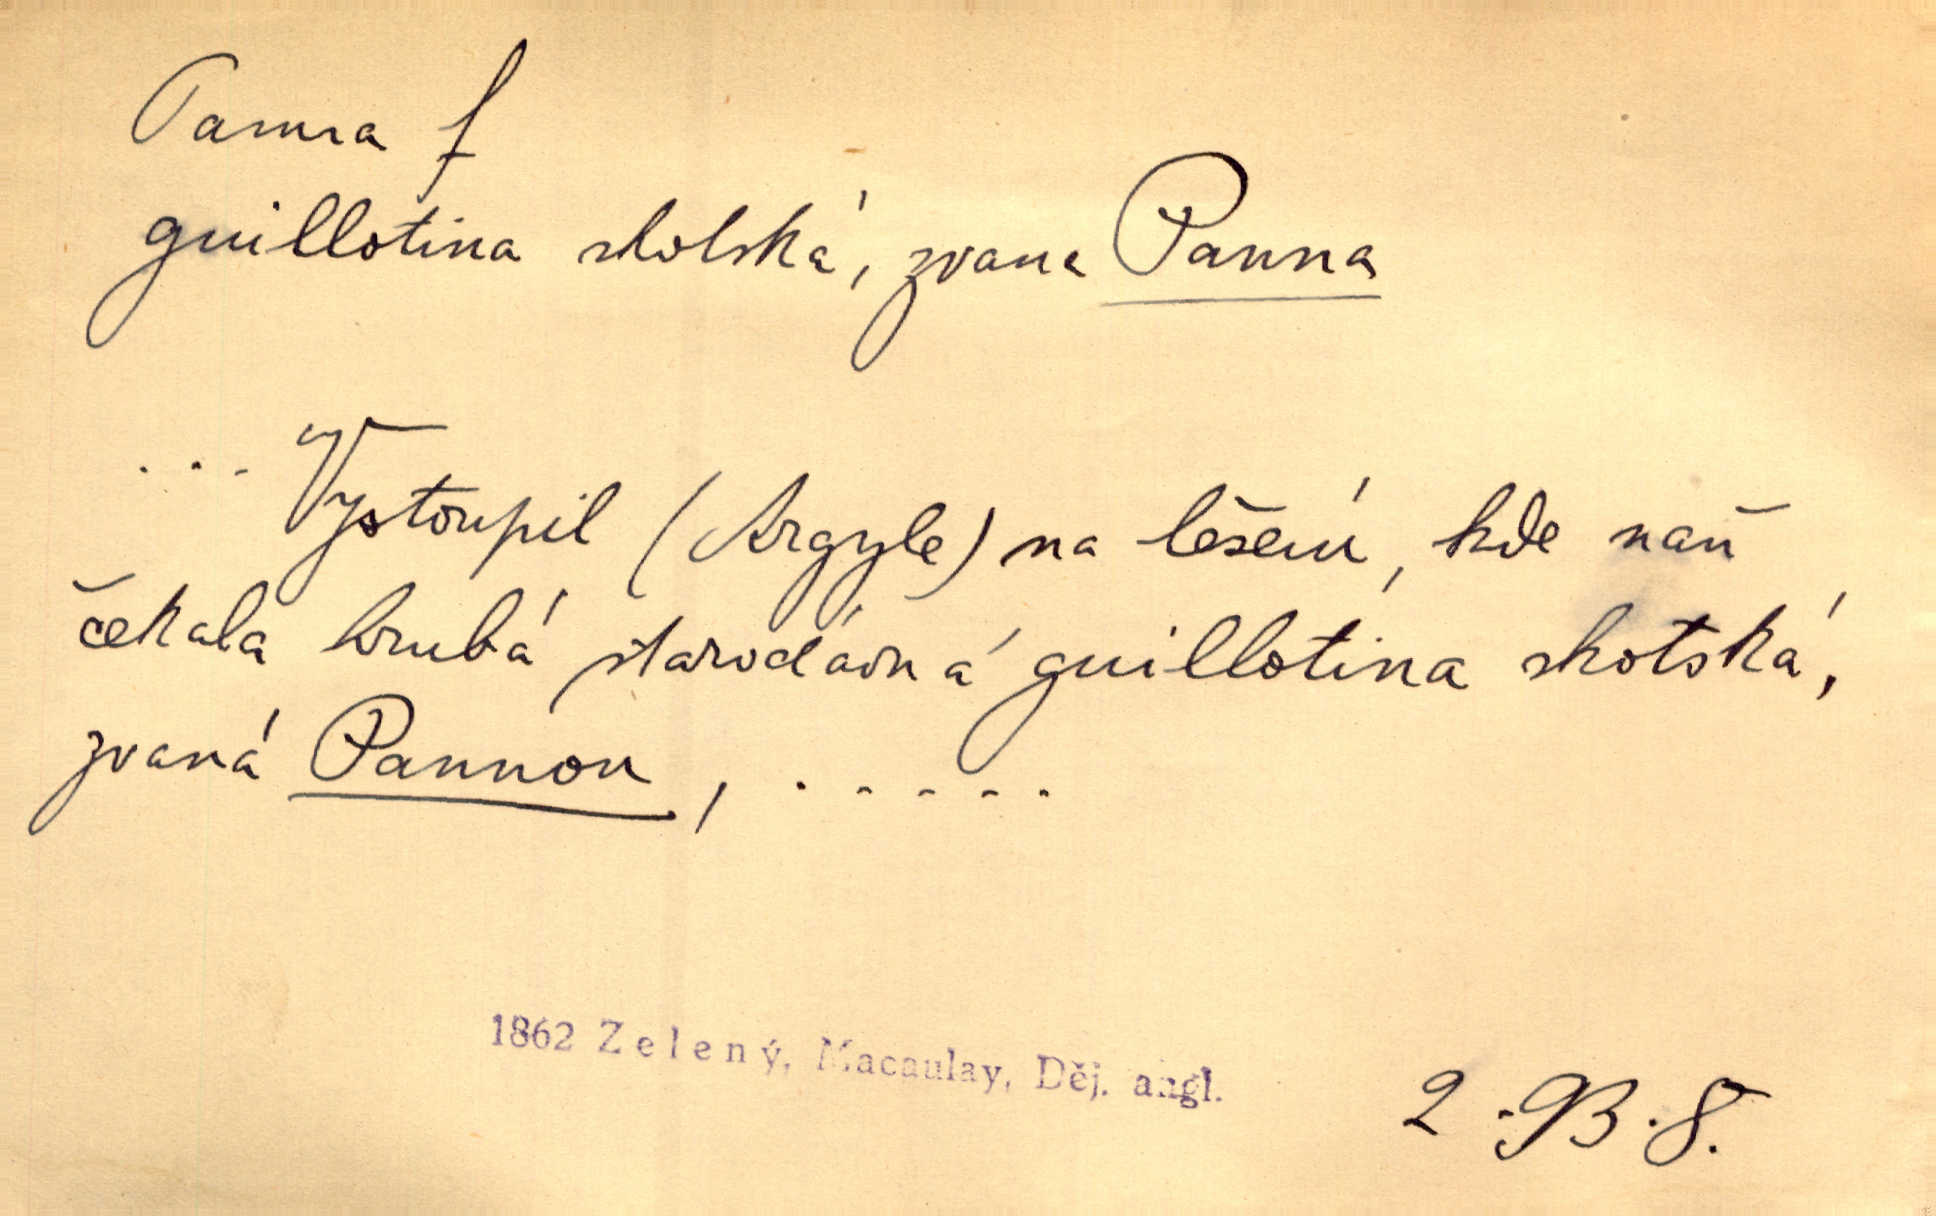 Panna f
guillotina skotská, zvaná Panna
... Vystoupil (Argyle) na lešení, kde naň
čekala hrubá starodávná guillotina skotská,
zvaná Pannou, .....
1862 Zelený, Macaulay, Děj. angl.
2.93.8.